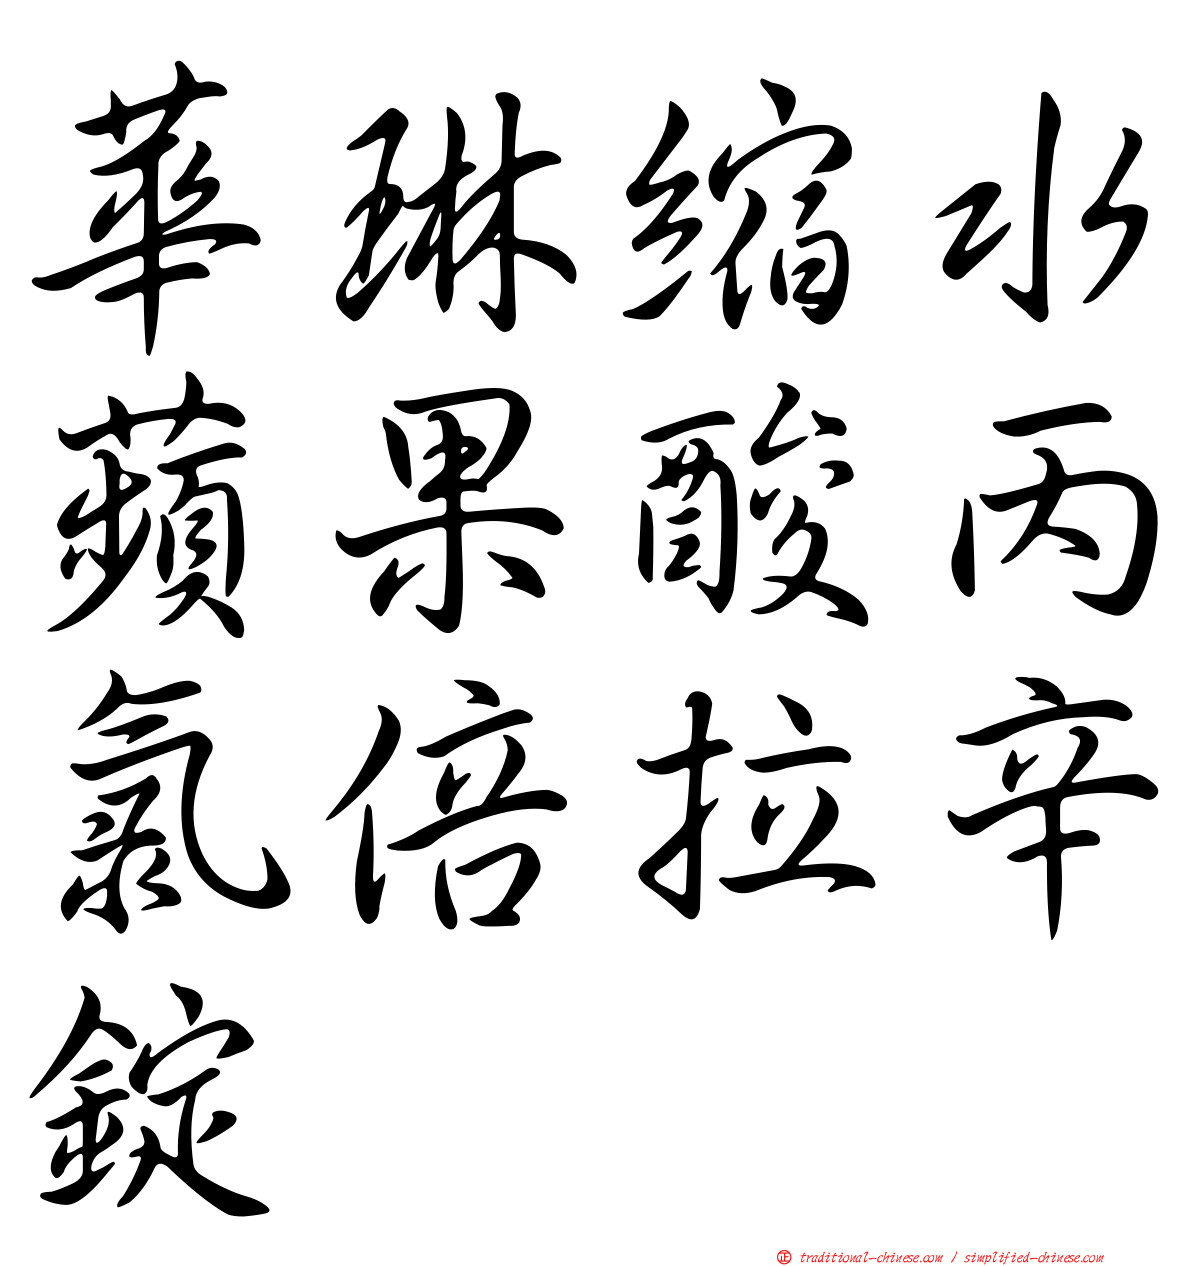 華琳縮水
蘋果酸丙
氯倍拉辛
錠
正 traditional-chinese.com / simplified-chinese.com